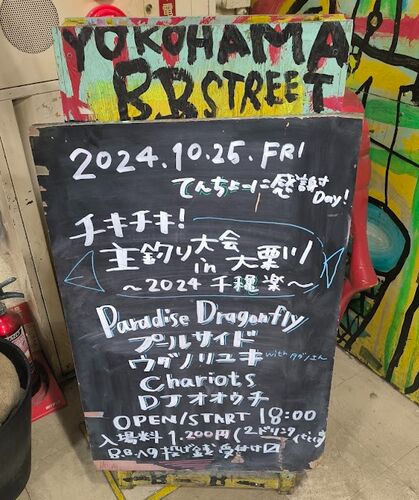 YOKOHAMA
B.B STREET
2024.10.25.FRI
てんちょーに感謝す
Day!
チキチキ!
主釣り大会
in 大栗川
～2024 千穐楽～
Paradise Dragonfly
プルサイド
ウダノリユキ with タダノさん
Chariots
DJオオウチ
OPEN/START 18:00
入場料 1.200円(2ドリンク
投げ銭受付